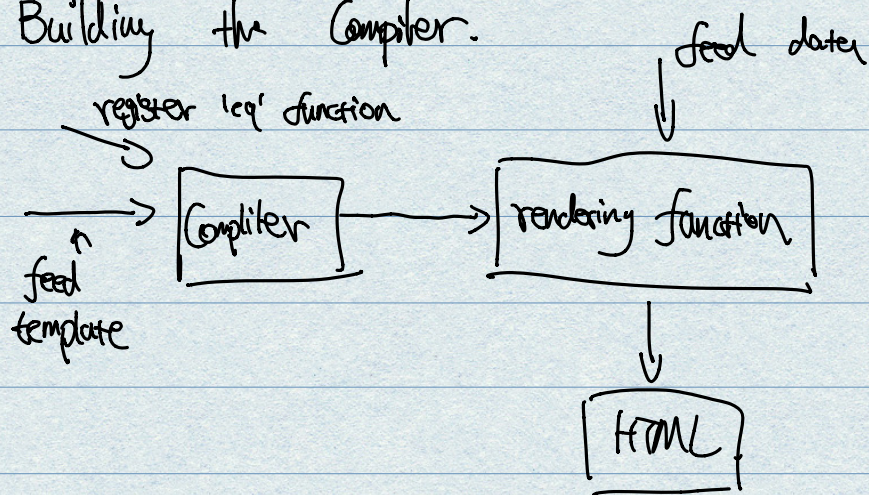 Building the Compiler.
feed data
register 'eq' function
Compliter
rendering function
feed
template
HTML